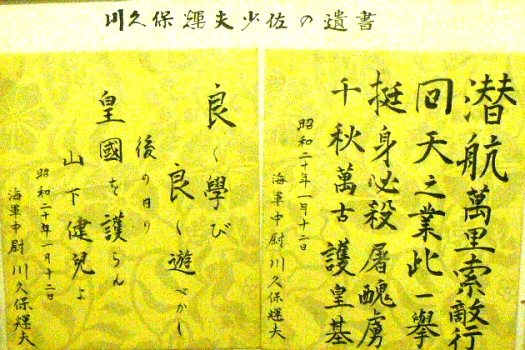 川久保輝夫少佐の遺書
潜航萬里索敵行
回天之業此一擧
挺身必殺屠醜虜
千秋萬古護皇基
昭和二十年一月十二日
海軍中尉川久保輝夫
良く學び
良く遊べかし
後の日の
皇國を護らん
山下健兒よ
昭和二十年一月十二日
海軍中尉川久保輝夫